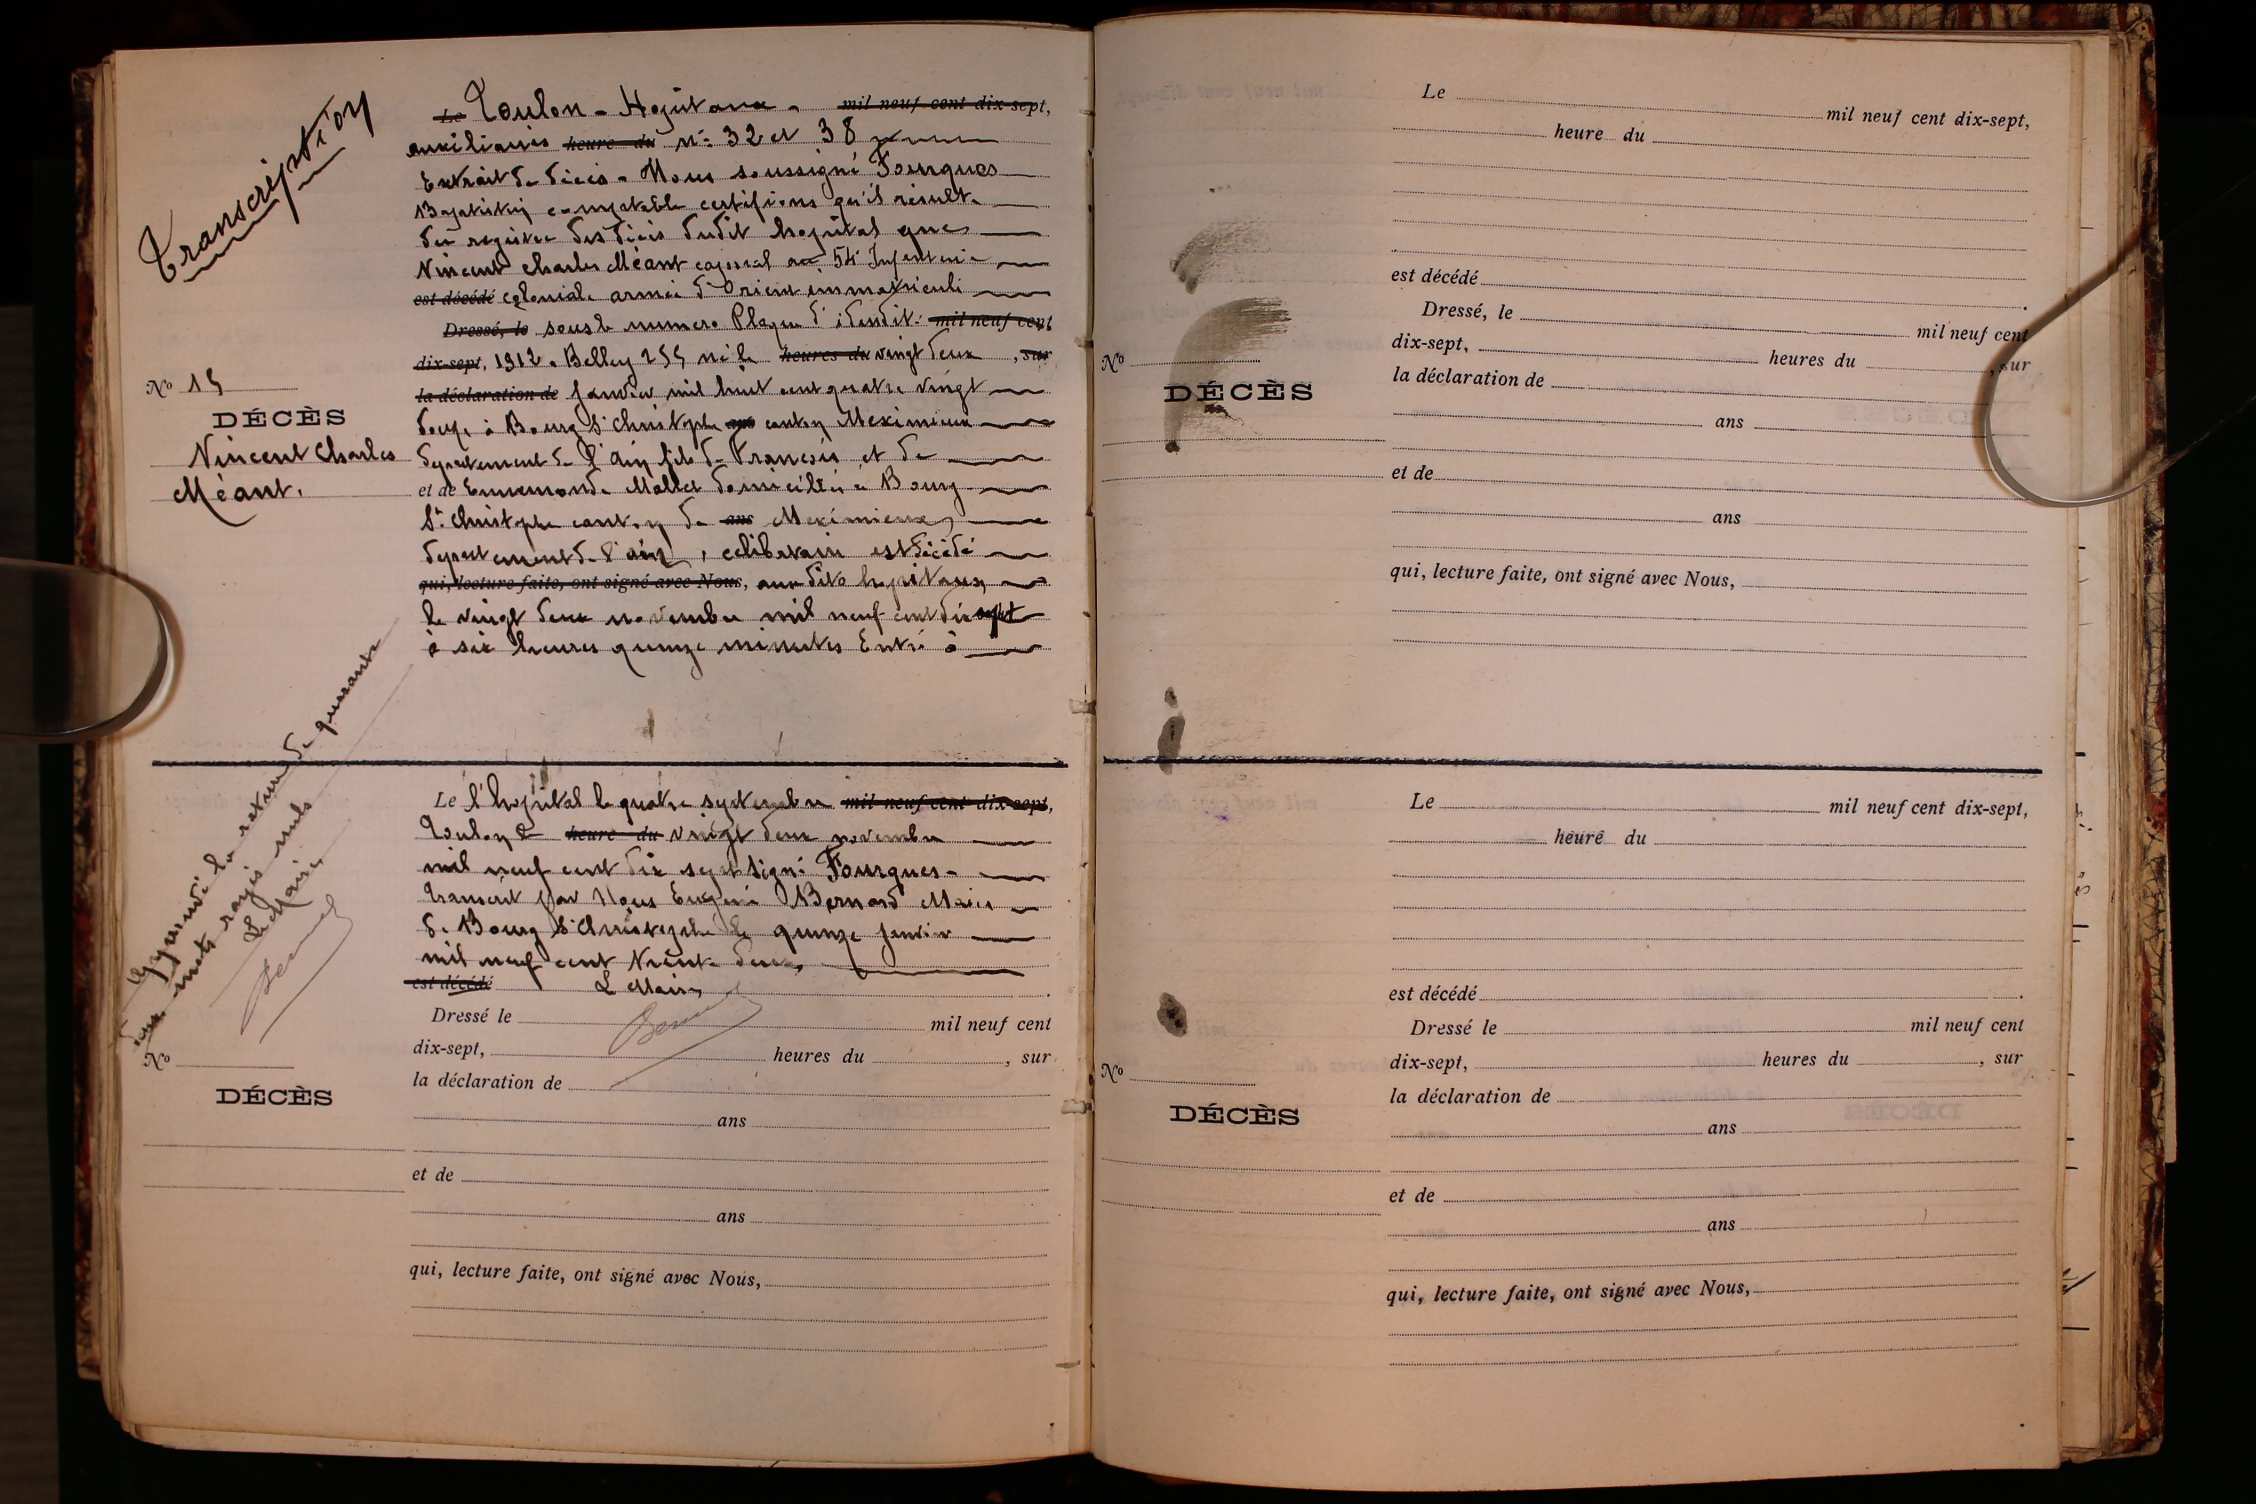 Transcription
Le Toulon - Hopitaux - mil neuf cent dix-sept,
auxiliaires heure du n° 32 et 38
Extrait de décès - Nous soussigné Fourques
comptable certifions qu'il résulte
du registre des décès dudit hopital que
Vincent Charles Méant caporal au 54e Infanterie
est décédé coloniale armée d'Orient immatriculé
Dressé, le sous le numéro Plaque d'identité mil neuf cent
dix-sept, 1912 - Belley 255 né le heures du vingt deux , sur
la déclaration de Janvier mil huit cent quatre vingt
douze à Bourg St Christophe ans canton Meximieux
departement de l'ain fils de Francois et de
et de Ennemonde Mallet domiciliés à Bourg
St Christophe canton de ans Meximieux,
departement de l'ain, celibataire est décédé
qui, lecture faite, ont signé avec Nous, aux dits hopitaux
le vingt deux novembre mil neuf cent dix sept
à six heures quinze minutes Entré à
No 15
DÉCÈS
Vincent Charles
Méant.
Approuvé la rature de quarante
deux mots rayés nuls
Le Maire
Bernard
Le l'hopital le quatre septembre mil neuf cent dix-sept,
Toulon le heure du vingt deux novembre
mil neuf cent dix sept signé Fourques -
Transcrit par Nous Eugène Bernard Maire
de Bourg St Christophe le quinze janvier
mil neuf cent trente deux,
est décédé Le Maire,
Bernard
Dressé le mil neuf cent
dix-sept, heures du , sur
la déclaration de
ans
et de
ans
qui, lecture faite, ont signé avec Nous,
No
DÉCÈS
Le mil neuf cent dix-sept,
heure du
est décédé .
Dressé, le mil neuf cent
dix-sept, heures du , sur
la déclaration de
ans
et de
ans
qui, lecture faite, ont signé avec Nous,
No
DÉCÈS
Le mil neuf cent dix-sept,
heure du
est décédé .
Dressé le mil neuf cent
dix-sept, heures du , sur
la déclaration de
ans
et de
ans
qui, lecture faite, ont signé avec Nous,
No
DÉCÈS